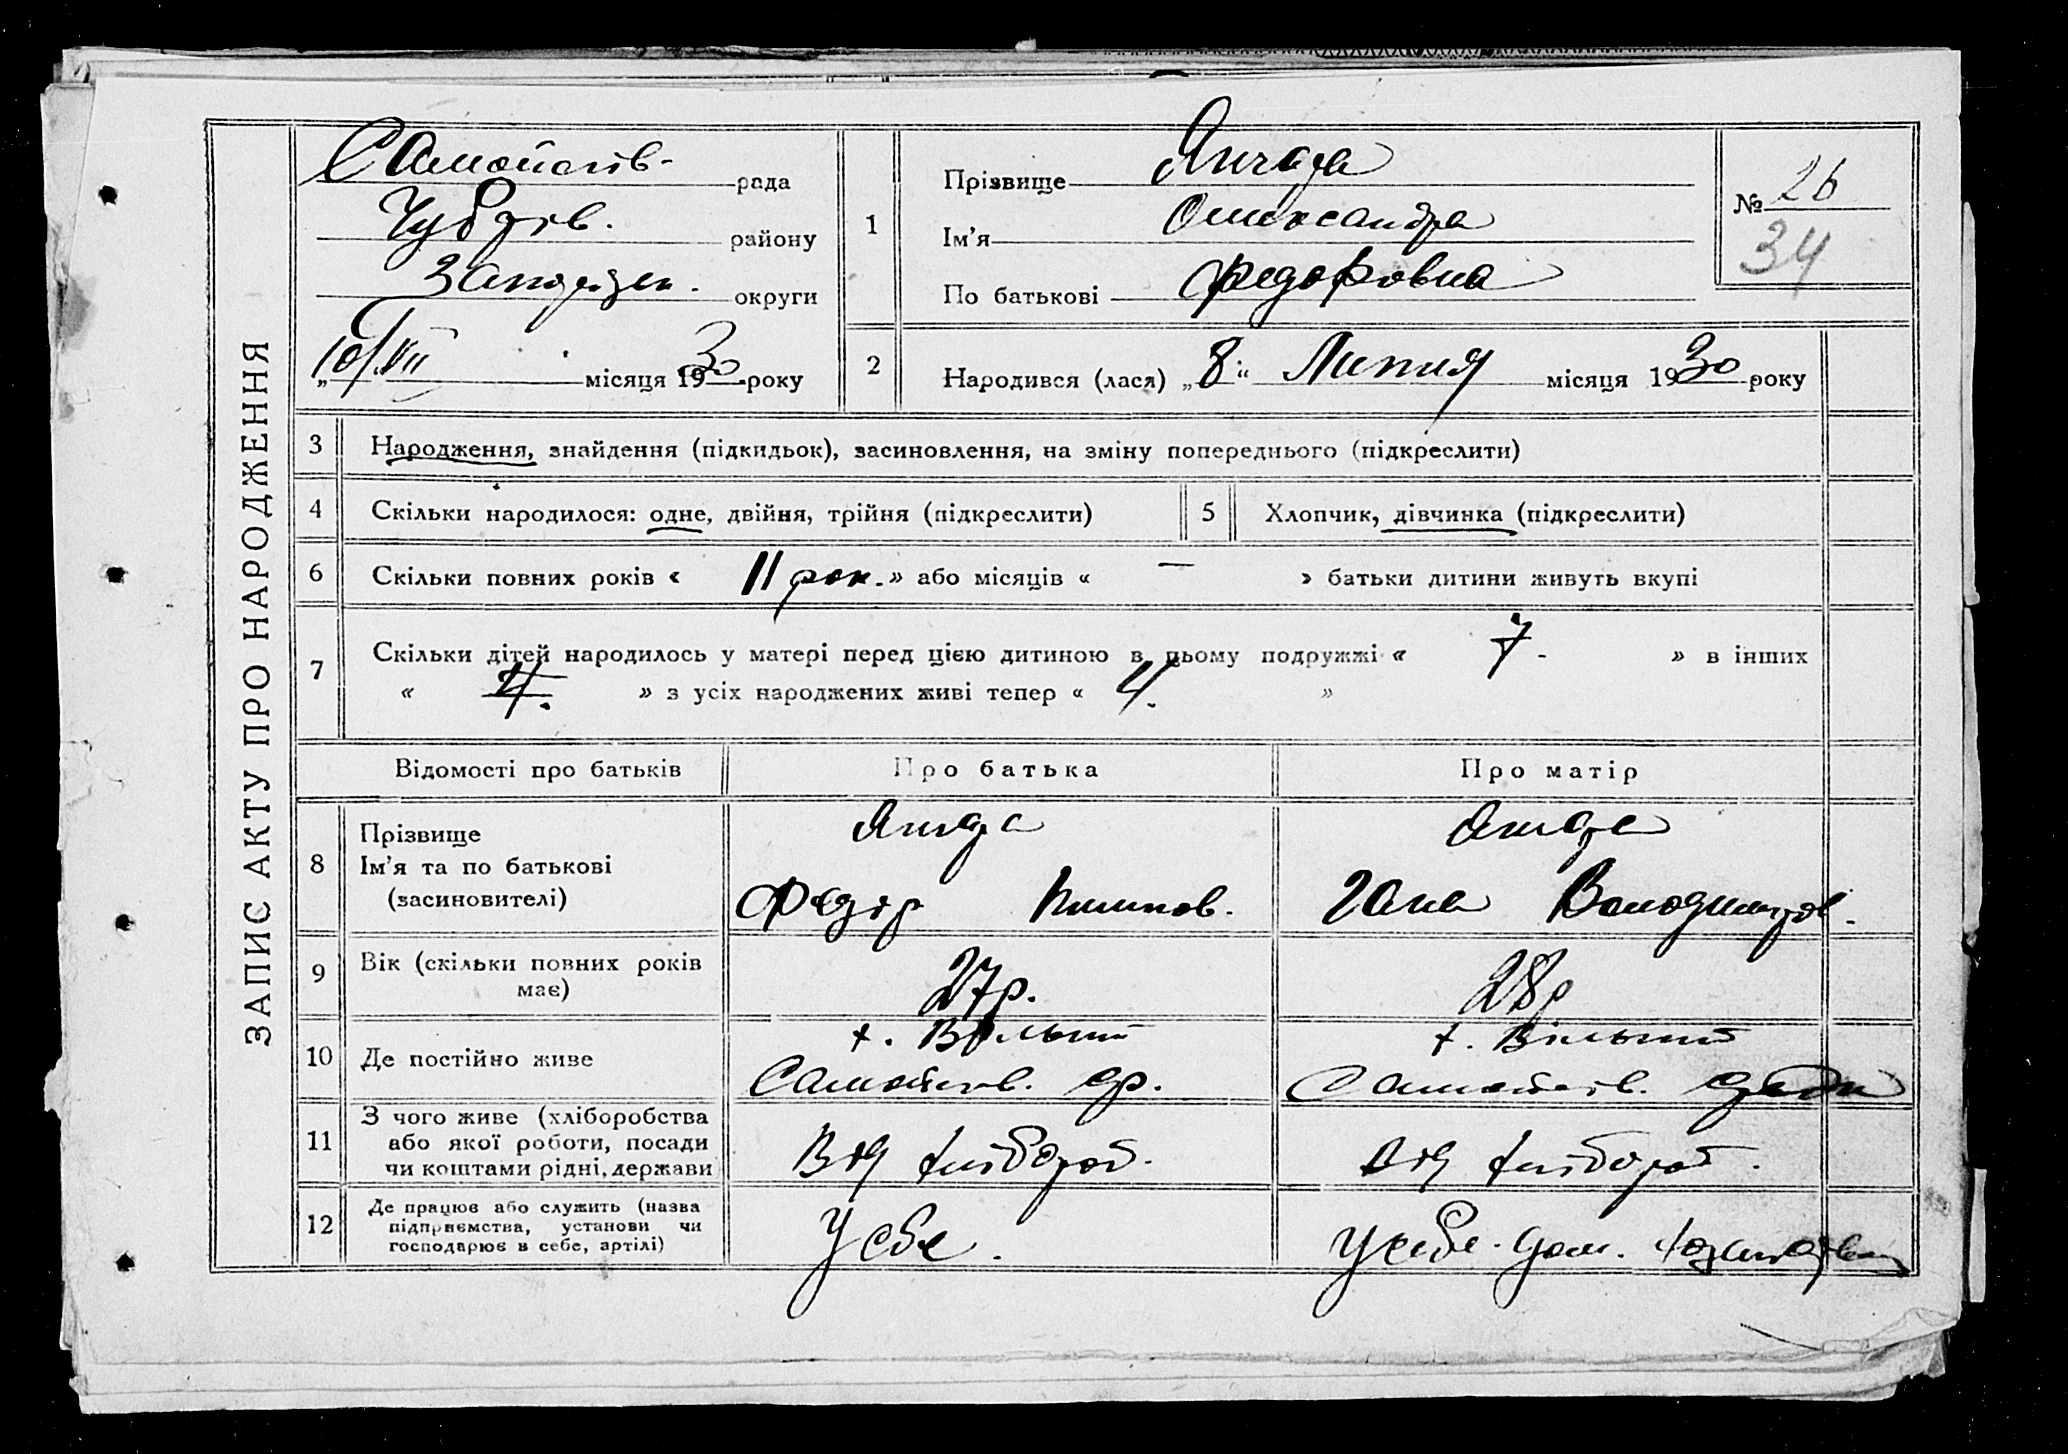 ЗАПИС АКТУ ПРО НАРОДЖЕННЯ
Самойлів- рада
Чубарів. району
округи
„10/VII місяця 1930 року
1
Прізвище
Ім'я Олександра
По батькові Федоровна
№ 26
34
2
Народився (лася) „8" Липня місяця 1930 року
3 Народження, знайдення (підкидьок), засиновлення, на зміну попереднього (підкреслити)
4 Скільки народилося: одне, двійня, трійня (підкреслити) 5 Хлопчик, дівчинка (підкреслити)
6 Скільки повних років « 11 рок. » або місяців « — » батьки дитини живуть вкупі
7 Скільки дітей народилось у матері перед цією дитиною в цьому подружжі « 7. » в інших
« » з усіх народжених живі тепер « 4. »
Відомості про батьків Про батька Про матір
8 Прізвище
Ім'я та по батькові
(засиновителі)
Федір
Гана Володимиров.
9 Вік (скільки повних років має) 27р. 28р
10 Де постійно живе
х. Вільний
Самойлів. с/р.
х. Вільний
Самойлів.
11 З чого живе (хліборобства
або якої роботи, посади
чи коштами рідні, держави
Від хлібороб.
від хлібороб.
12 Де працює або служить (назва
підприємства, установи чи
господарює в себе, артілі)
У себе.
У себе. дом.